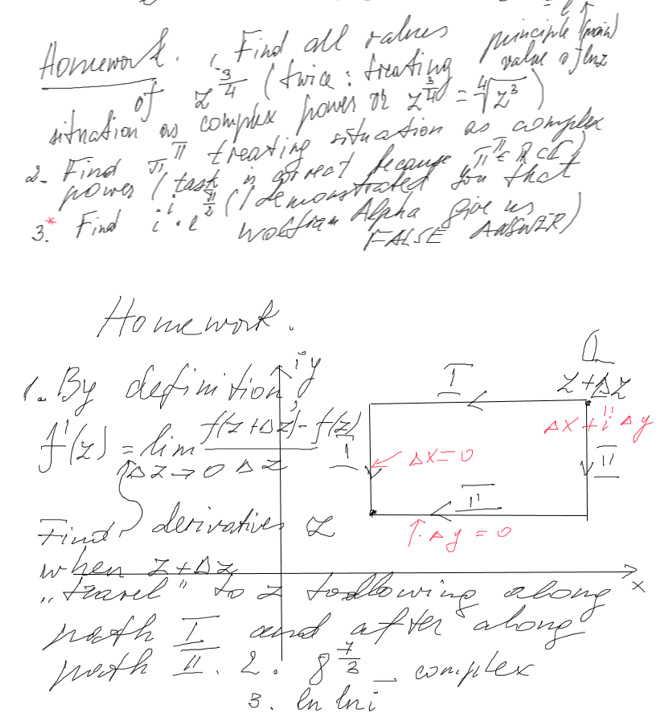 Homework. 1 Find all values principle (main)
of z^{3/4} (twice: treating value of ln z
situation as complex power or z^{3/4} = \sqrt[4]{z^3})
2. Find π^π treating situation as complex
power (task is correct because π ∈ R ⊂ C)
3.* Find i^i · e^{π/2} (I demonstrated you that
Wolfram Alpha give us
FALSE ANSWER)
Homework.
1. By definition,
f'(z) = lim_{Δz → 0} \frac{f(z+Δz) - f(z)}{Δz}
Find derivatives z
when z+Δz
"travel" to z following along
path I and after along
path II. 2. 8^{7/3} – complex
3. ln ln i
iy
I
z+Δz
Δx + i Δy
I
Δx=0
II
II
Δy = 0
x